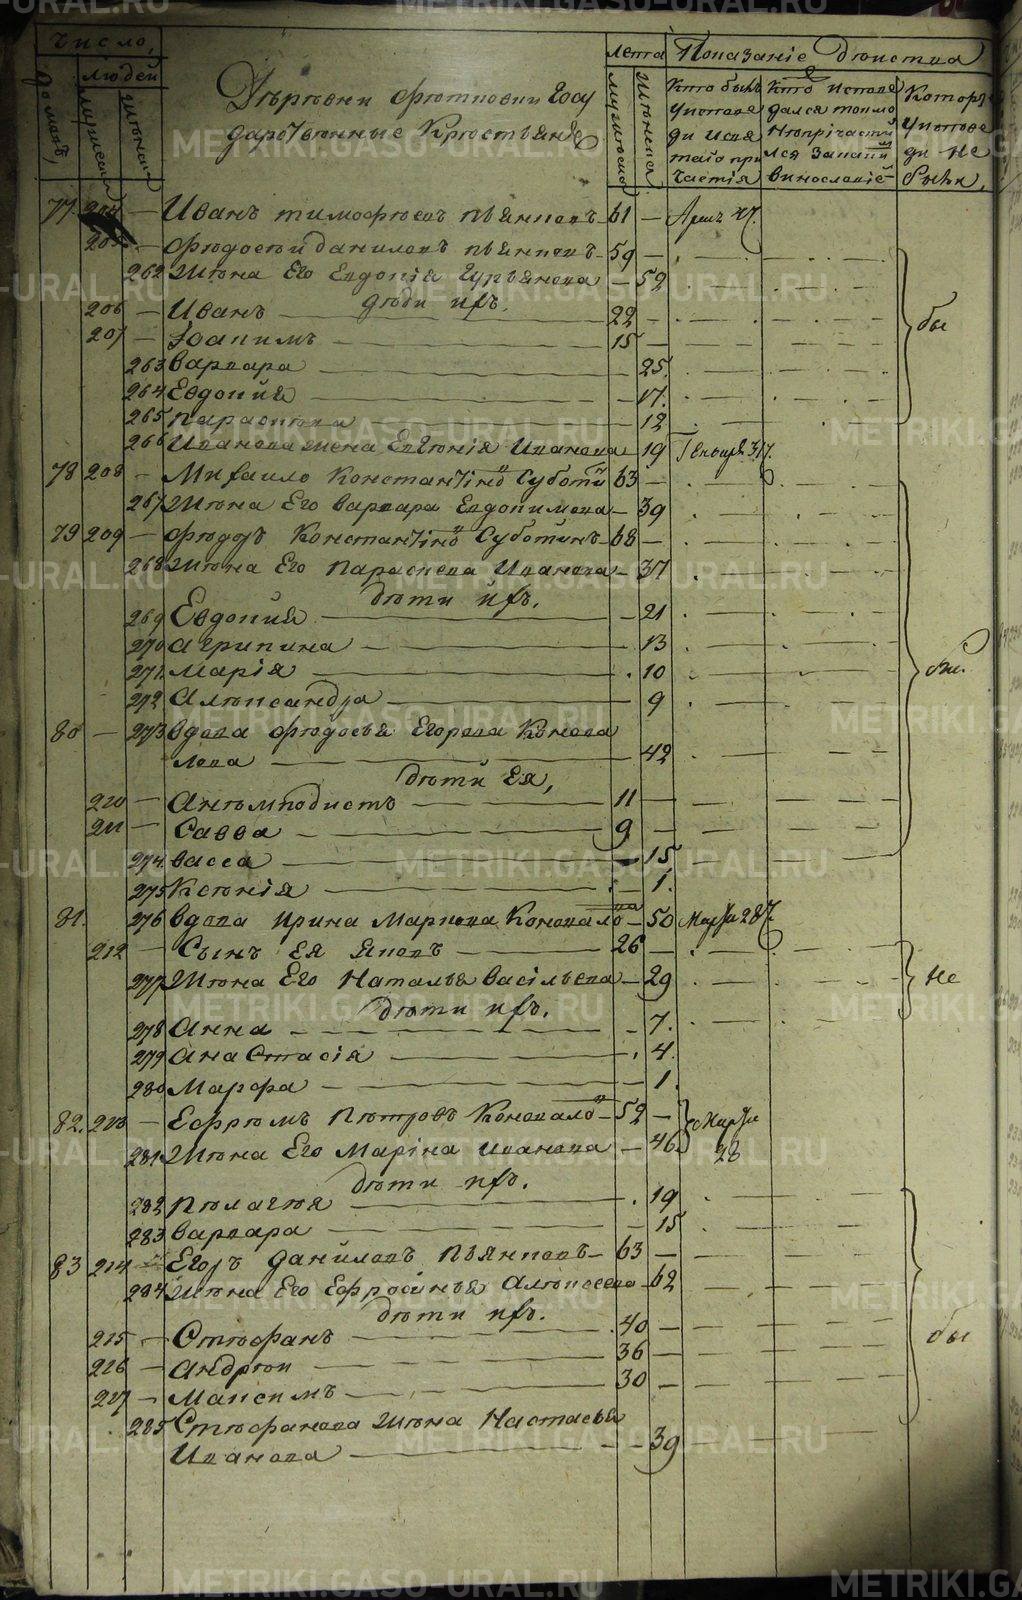 Число,
лета Показаніе действа
Домовъ, людей мужеска женска
Деревни Фетковки Госу
дарственные Крестьяне
мужеска женска
Кто былъ у исповеди и свя
таго при
частія
Кто испове
дался токмо
Непричасти
лся Закакии
винословіе
Которые
у испове
ди не
были.
77 204 — Иванъ тимофеевъ пьянковъ 61 — Апреля 17.
205 — Федосеи даниловъ пьянковъ 59 —
262 жена Его Евдокія Гурьянова — 52
дети ихъ.
206 — Иванъ 22 — бы
207 — Іоакимъ 15 —
263 варвара — 25.
264 Евдокия — 17.
265 параскева — 12
266 Иванова жена Евгенія Иванова 19 Генваря 31.
78 208 — Михаило Константіно Суботи 63 —
267 жена Его варвара Евдокимова — 39
79 209 — Федоръ Константіно Суботинъ 68 —
268 жена Его параскева Иванова — 37
дети ихъ.
269 Евдокия — 21
270 агрипина — 13
271 марія . 10
272 Александра — 9
80 — 273 вдова Федосья Егорова Конова
лова — 42
дети Ея,
210 — Анемподистъ 11 —
211 — Савва 9 —
274 васса — 15
275 Ксенія — 1.
81. 276 вдова Ирина Маркова Коновало — 50 Марта 28.
212 — Сынъ ея Яковъ 26 — не
277 жена Его Наталья васільева — 29
дети ихъ.
278 анна — 7.
279 анастасія . 4.
280 Марфа — 1.
82. 213 — Ефремъ Петровъ Коновало 52 — Марта
281 жена Его Маріна иванова — 46. 28
дети ихъ.
282 пелагея . 19
283 варвара — 15
83 214 — Егоръ даниловъ пьянковъ 63 —
284 жена Его Ефросинья Алексеева 62
дети ихъ.
215 — Стефанъ . 40 — бы
216 — андреи 36 —
217 — максимъ 30 —
285 Стефанова жена Настасья
Иванова — 39
METRIKI.GASO-URAL.RU